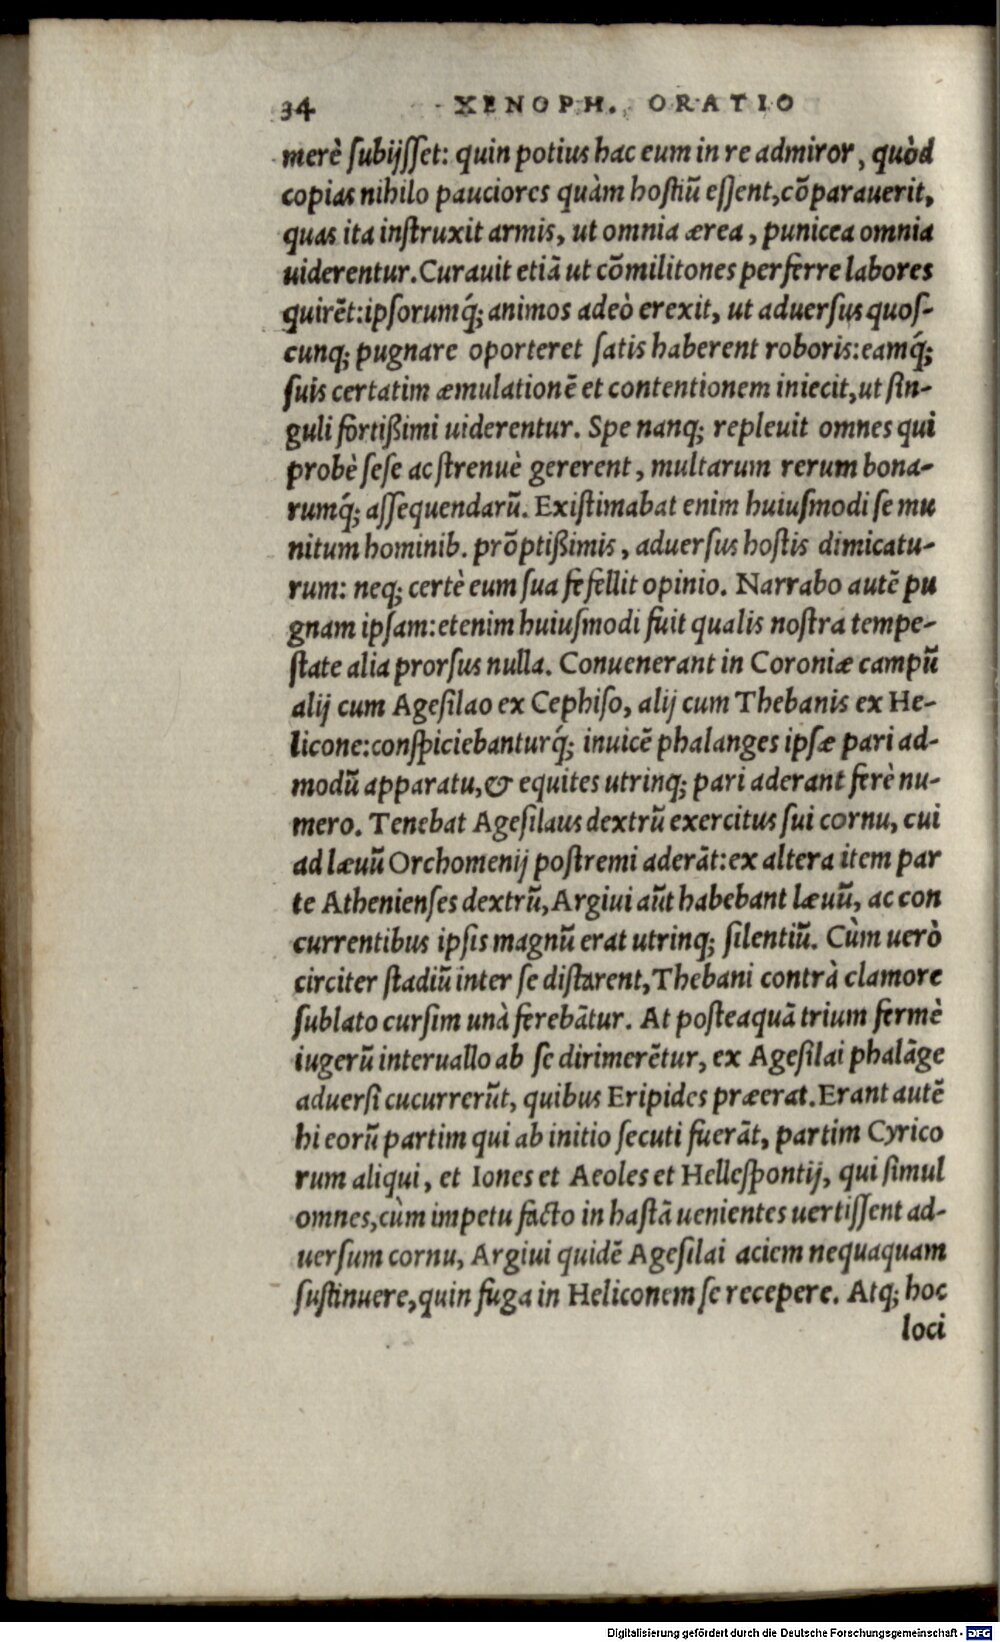 34 XENOPH. ORATIO
merè ſubijſſet: quin potius hac eum in re admiror, quòd
copias nihilo pauciores quàm hoſtiũ eſſent, cõparauerit,
quas ita inſtruxit armis, ut omnia ærea, punicea omnia
uiderentur. Curauit etiã ut cõmilitones perferre labores
quirẽt: ipſorumq́; animos adeò erexit, ut aduerſus quoſ-
cunq; pugnare oporteret ſatis haberent roboris: eamq́;
ſuis certatim æmulationẽ et contentionem iniecit, ut ſin-
guli fortißimi uiderentur. Spe nanq; repleuit omnes qui
probè ſeſe ac ſtrenuè gererent, multarum rerum bona-
rumq́; aſſequendarũ. Exiſtimabat enim huiuſmodi ſe mu
nitum hominib. prõptißimis, aduerſus hoſtis dimicatu-
rum: neq; certè eum ſua fefellit opinio. Narrabo autẽ pu
gnam ipſam: etenim huiuſmodi fuit qualis noſtra tempe-
ſtate alia prorſus nulla. Conuenerant in Coroniæ campũ
alij cum Ageſilao ex Cephiſo, alij cum Thebanis ex He-
licone: conſpiciebanturq́; inuicẽ phalanges ipſæ pari ad-
modũ apparatu, & equites utrinq; pari aderant ferè nu-
mero. Tenebat Ageſilaus dextrũ exercitus ſui cornu, cui
ad læuũ Orchomenij poſtremi aderãt: ex altera item par
te Athenienſes dextrũ, Argiui aũt habebant læuũ, ac con
currentibus ipſis magnũ erat utrinq; ſilentiũ. Cùm uerò
circiter ſtadiũ inter ſe diſtarent, Thebani contrà clamore
ſublato curſim unà ferebãtur. At poſteaquã trium fermè
iugerũ interuallo ab ſe dirimerẽtur, ex Ageſilai phalãge
aduerſi cucurrerũt, quibus Eripides præerat. Erant autẽ
hi eorũ partim qui ab initio ſecuti fuerãt, partim Cyrico
rum aliqui, et Iones et Aeoles et Helleſpontij, qui ſimul
omnes, cùm impetu facto in haſtã uenientes uertiſſent ad-
uerſum cornu, Argiui quidẽ Ageſilai aciem nequaquam
ſuſtinuere, quin fuga in Heliconem ſe recepere. Atq; hoc
loci
Digitalisierung gefördert durch die Deutsche Forschungsgemeinschaft - DFG